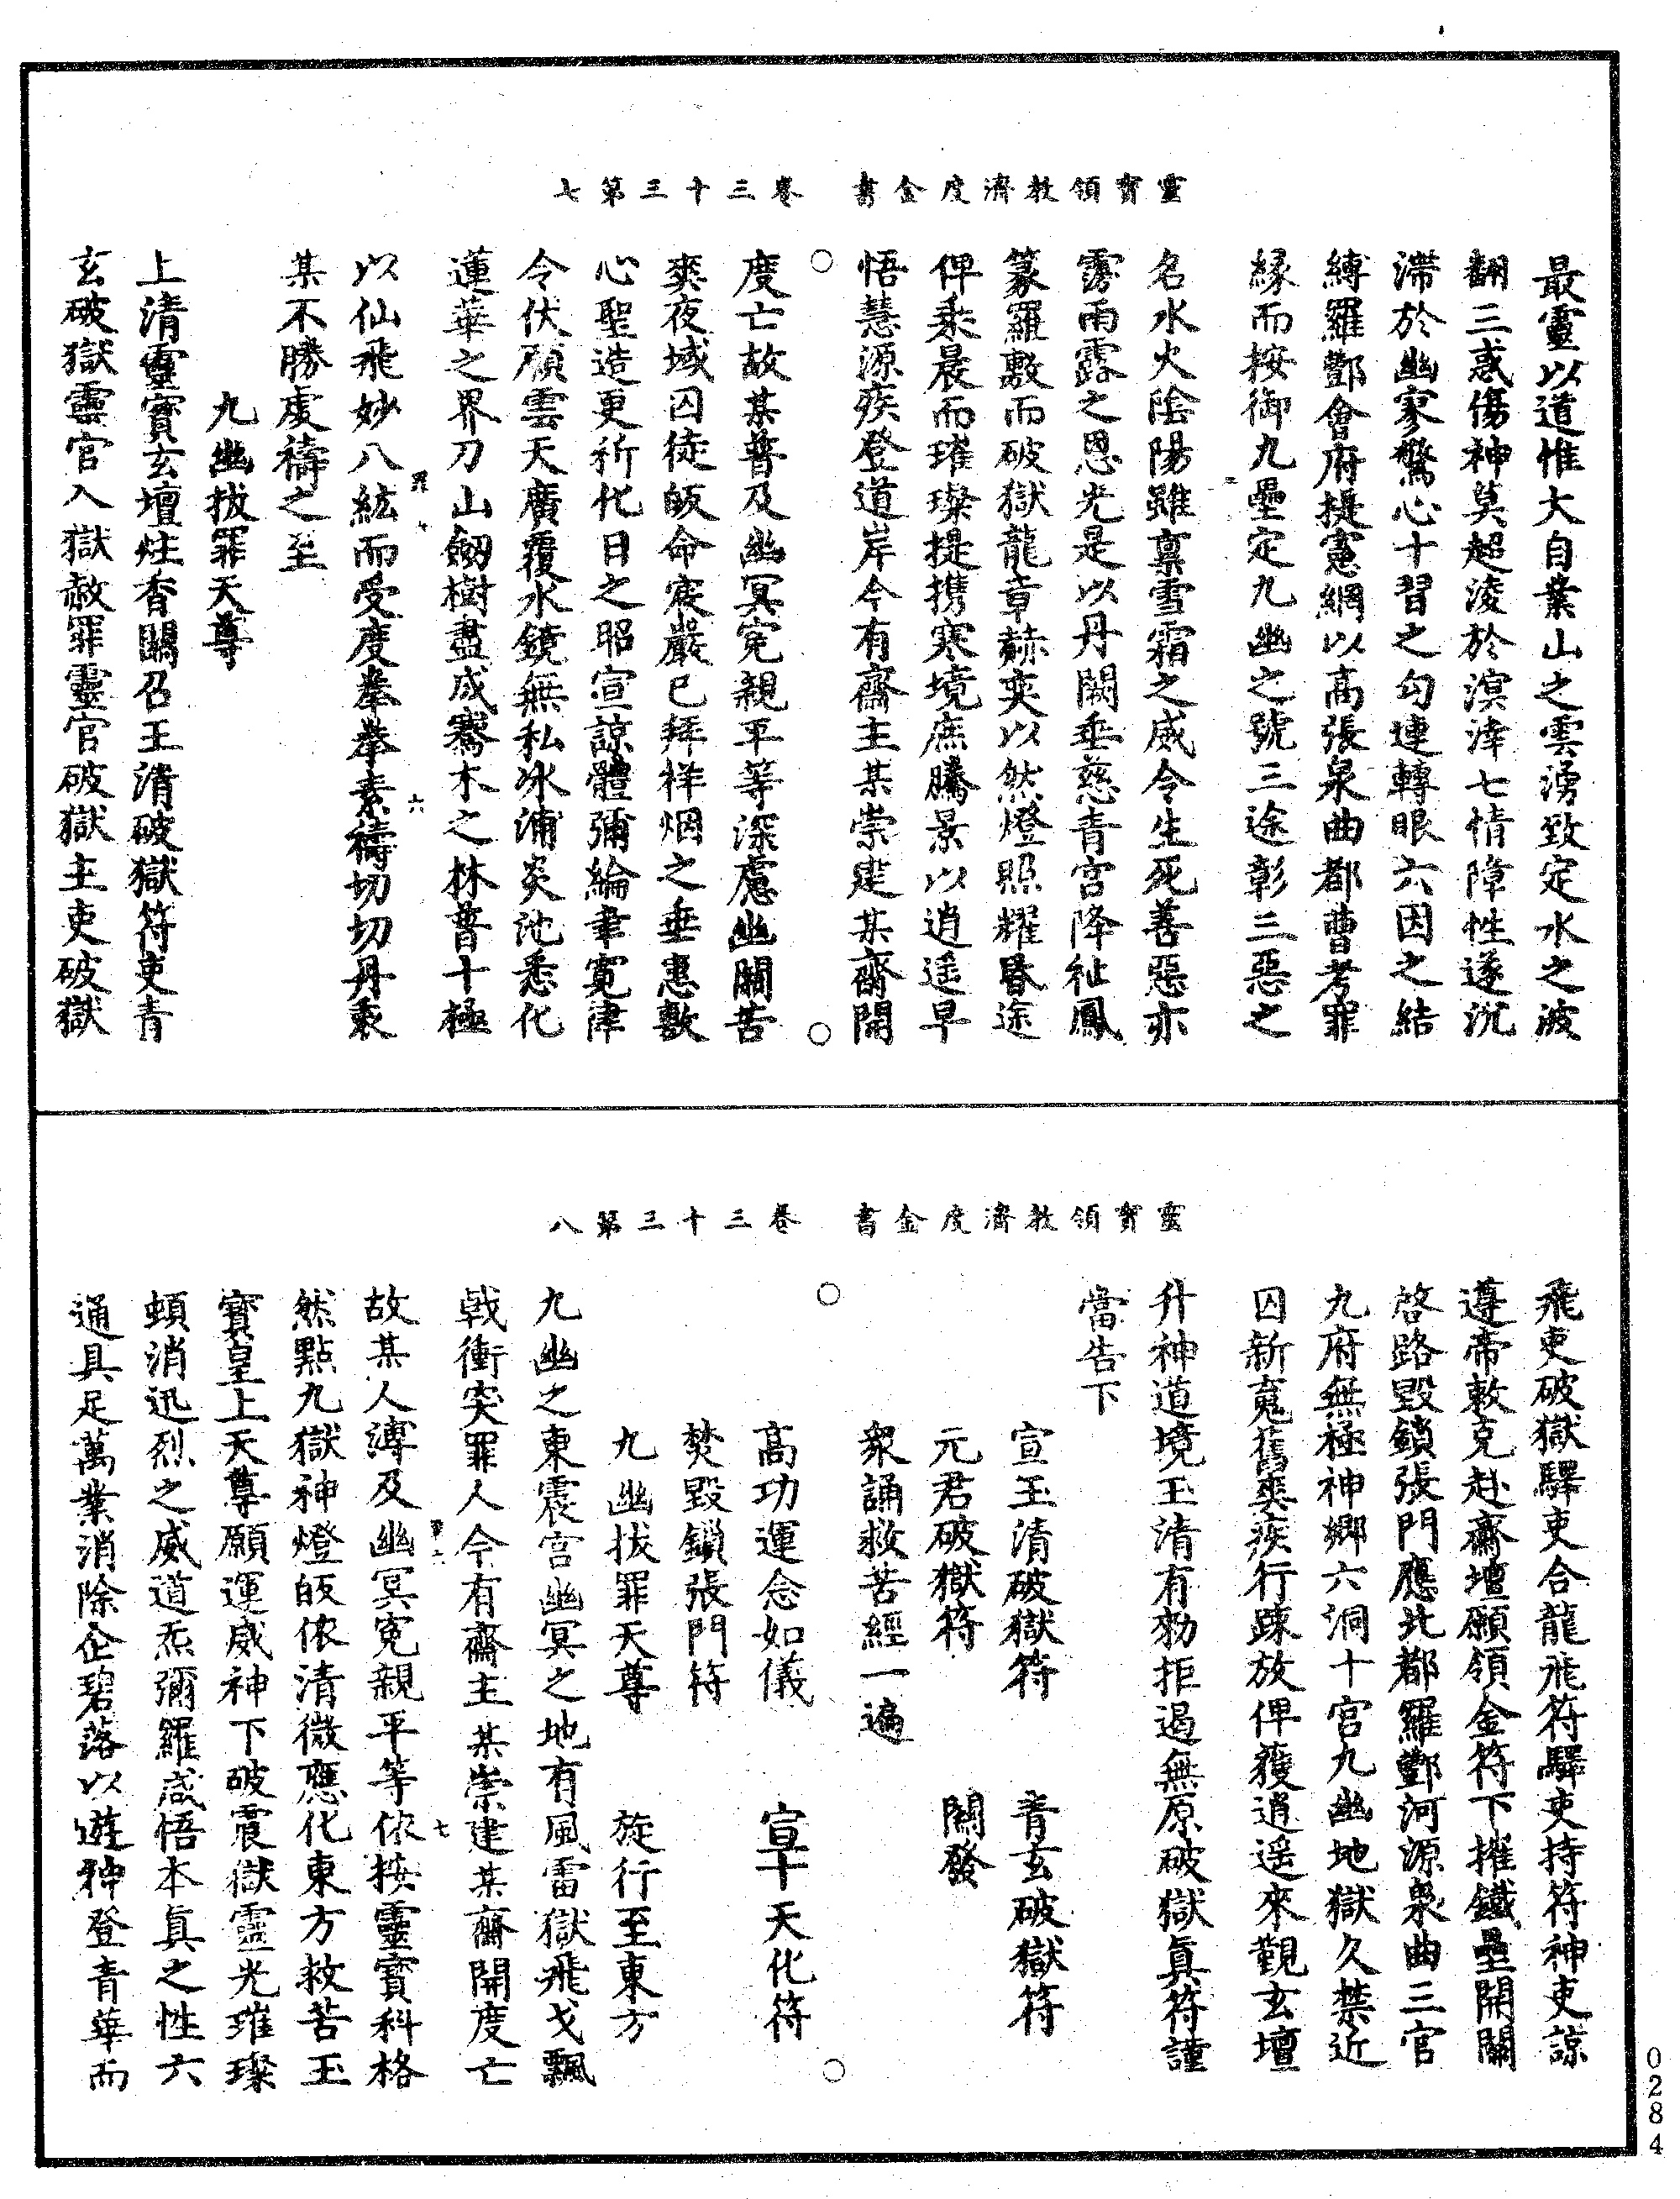 靈寶領教濟度金書　卷三十三第七
最靈以道惟大自業山之雲湧致定水之波
翻三惑傷神莫超淩於溟涬七情障性遂沉
滯於幽寥驚心十習之勾連轉眼六因之結
縛羅酆會府提憲網以高張泉曲都曹考罪
緣而按御九壘定九幽之號三途彰三惡之
名水火陰陽雖稟雪霜之威令生死善惡亦
霶雨露之恩光是以丹闕垂慈青宮降祉鳳
篆羅敷而破獄龍章赫奕以然燈照耀昏途
俾乘晨而璀璨提携寒境庶騰景以逍遥早
悟慧源疾登道岸今有齋主某崇建某齋開
度亡故某普及幽冥寃親平等深慮幽關苦
爽夜域囚徒皈命宸嚴已拜祥烟之垂惠敷
心聖造更祈化日之昭宣諒體彌綸聿寛律
令伏願雲天廣覆水鏡無私冰浦炎池悉化
蓮華之界刀山劒樹盡成騫木之林普十極
以仙飛妙八紘而受度拳拳素禱切切丹衷
某不勝虔禱之至
九幽拔罪天尊
上清靈寶玄壇炷香關召玉清破獄符吏青
玄破獄靈官入獄赦罪靈官破獄主吏破獄
罪十　六
靈寶領教濟度金書　卷三十三第八
飛吏破獄驛吏合龍飛符驛吏持符神吏諒
遵帝敕克赴齋壇願領金符下摧鐵壘開關
啓路毀鎖張門應北都羅酆河源泉曲三官
九府無極神鄉六洞十宮九幽地獄久禁近
囚新䰟舊爽疾行踈放俾獲逍遥來觀玄壇
升神道境玉清有勑拒遏無原破獄眞符謹
當告下
宣玉清破獄符　青玄破獄符
元君破獄符　關發
衆誦救苦經一遍
高功運念如儀　宣十天化符
焚毀鎖張門符
九幽拔罪天尊　旋行至東方
九幽之東震宮幽冥之地有風雷獄飛戈飄
戟衝突罪人今有齋主某崇建某齋開度亡
故某人溥及幽冥寃親平等依按靈寶科格
然點九獄神燈皈依清微應化東方救苦玉
寶皇上天尊願運威神下破震獄靈光璀璨
頓消迅烈之威道炁彌羅咸悟本眞之性六
通具足萬業消除企碧落以遊神登青華而
七
0284